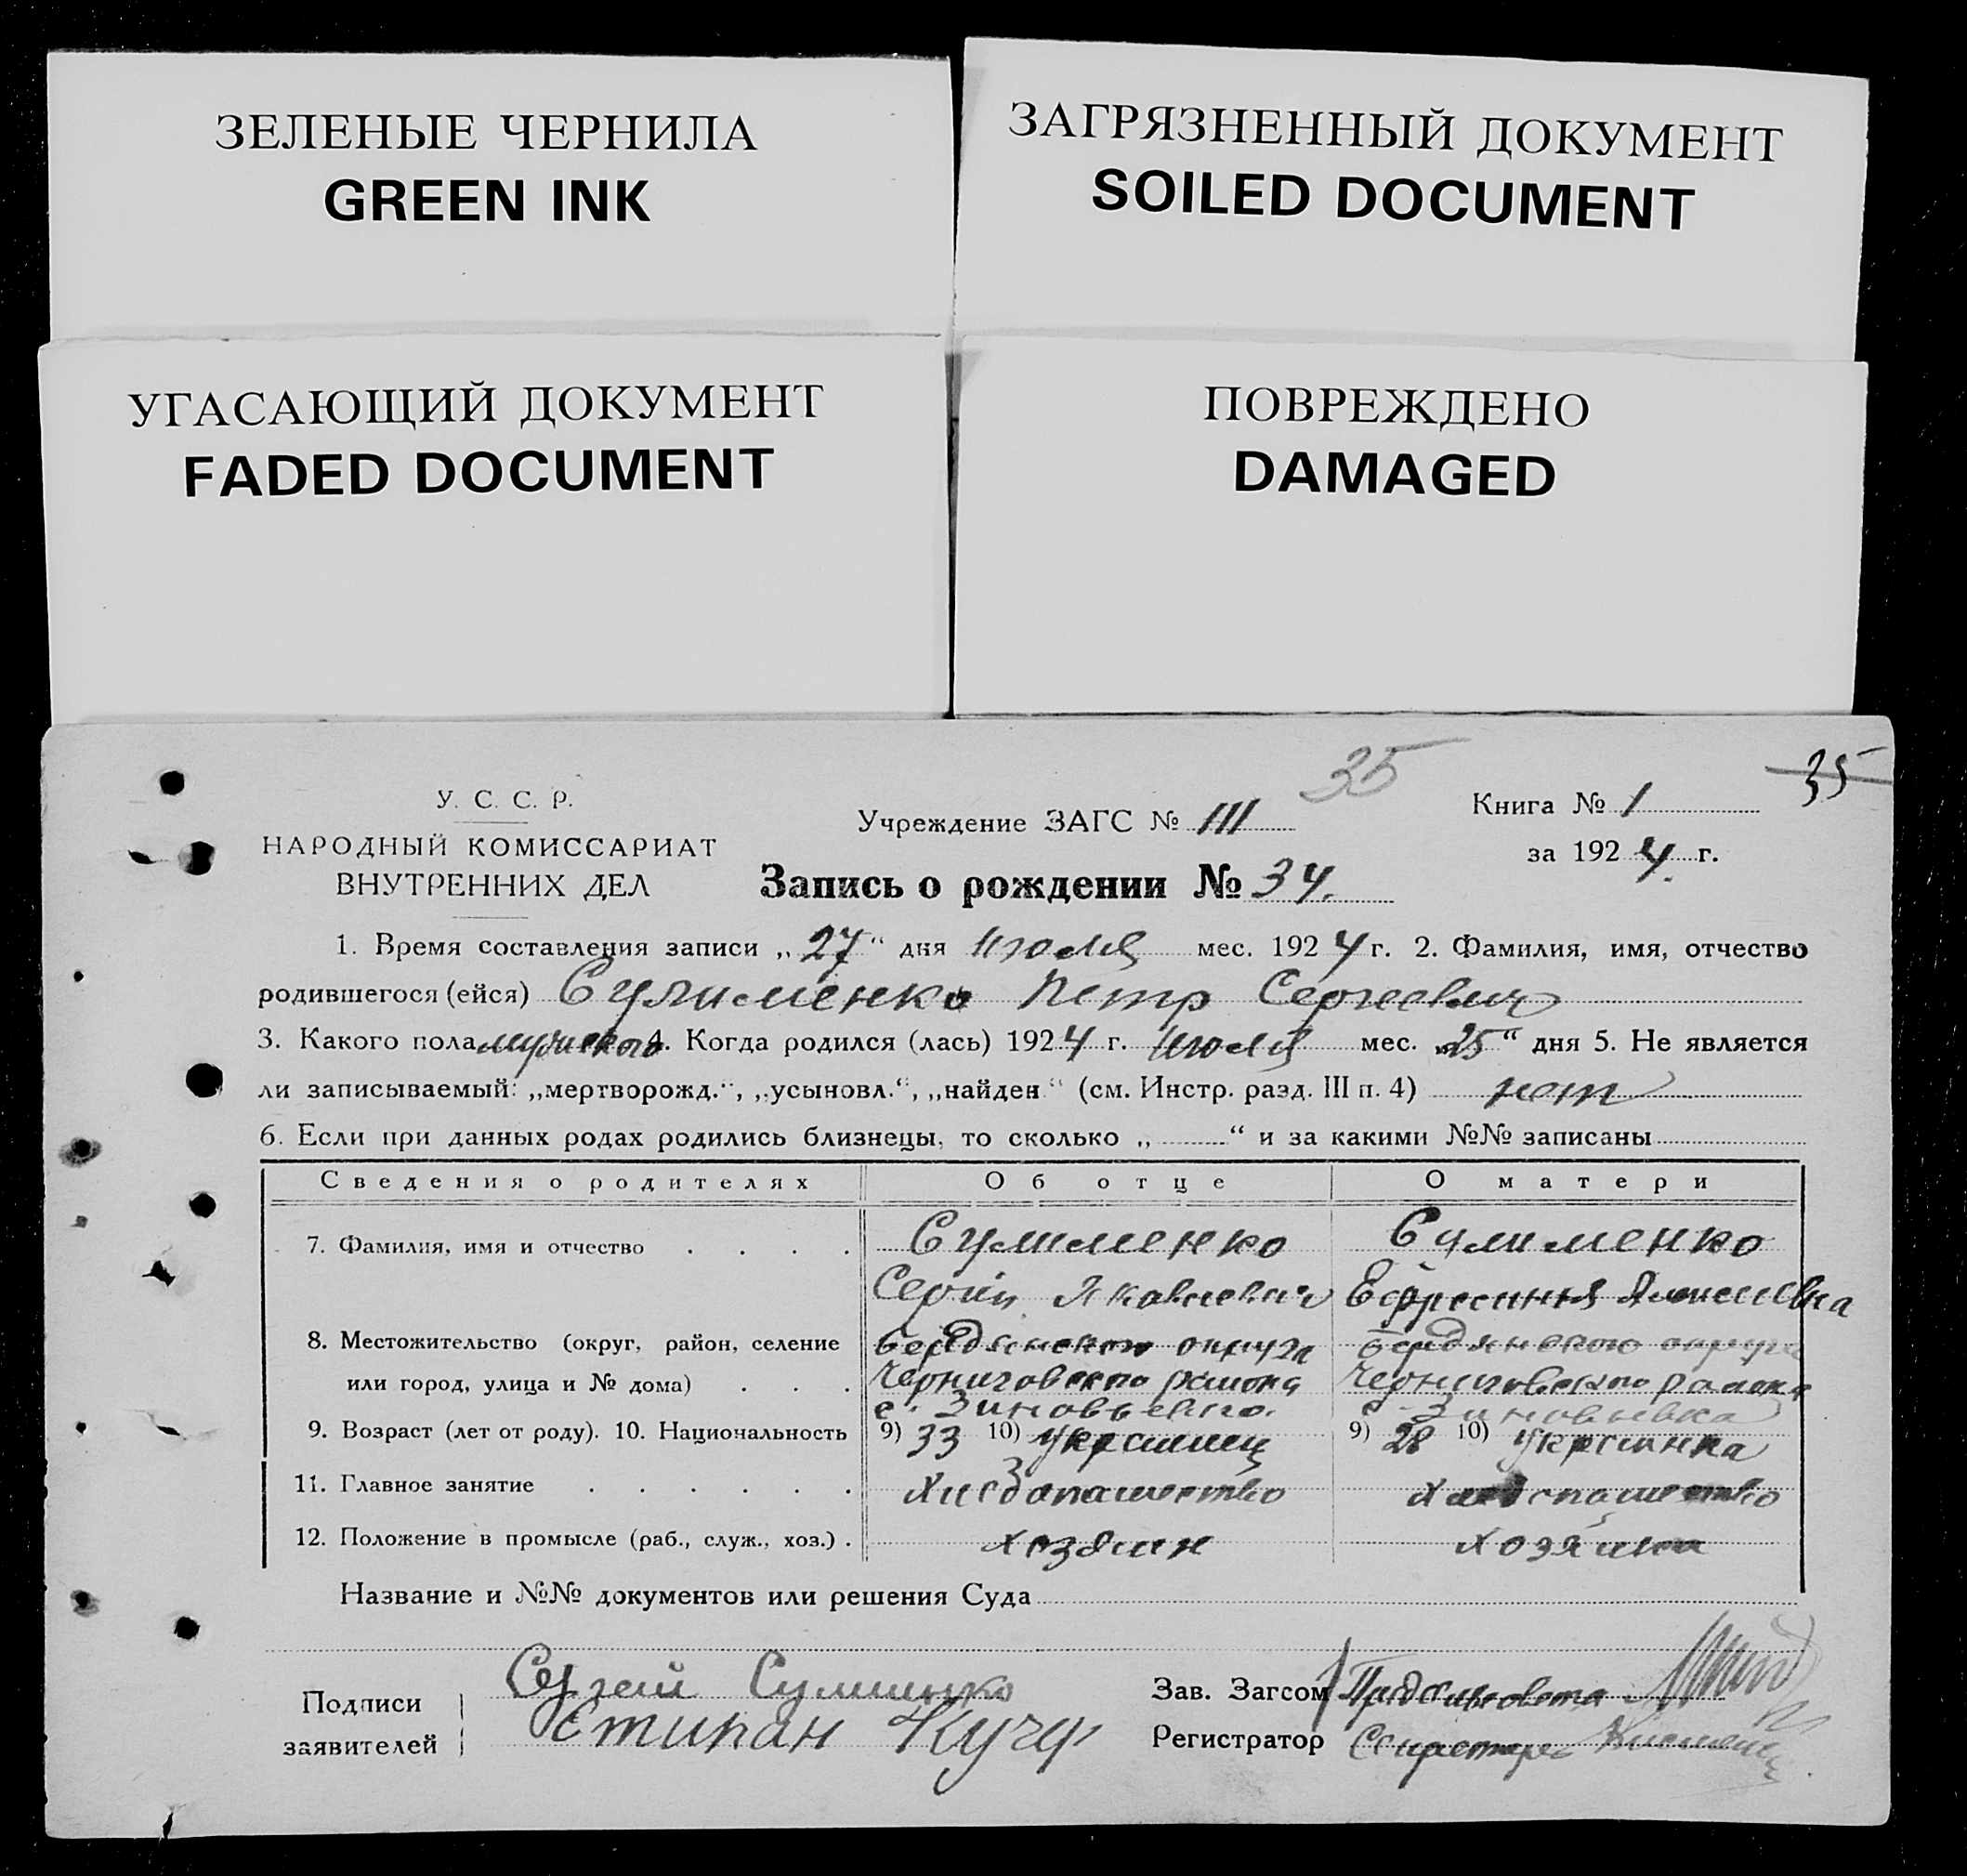 ЗЕЛЕНЫЕ ЧЕРНИЛА
GREEN INK
ЗАГРЯЗНЕННЫЙ ДОКУМЕНТ
SOILED DOCUMENT
УГАСАЮЩИЙ ДОКУМЕНТ
FADED DOCUMENT
ПОВРЕЖДЕНО
DAMAGED
35
35
У. С. С. Р.
НАРОДНЫЙ КОМИССАРИАТ
ВНУТРЕННИХ ДЕЛ
Учреждение ЗАГС № III
Книга № 1
за 1924 г.
Запись о рождении № 34.
1. Время составления записи „27“ дня июля мес. 1924 г. 2. Фамилия, имя, отчество
родившегося (ейся) Сулименко Петр Сергеевич
3. Какого пола мужского 4. Когда родился (лась) 1924 г. июля мес. „25“ дня 5. Не является
ли записываемый: „мертворожд.“, „усыновл.“, „найден“ (см. Инстр. разд. III п. 4) нет
6. Если при данных родах родились близнецы, то сколько „ “ и за какими №№ записаны
Сведения о родителях Об отце О матери
7. Фамилия, имя и отчество Сулименко Сулименко
Яковлевич
8. Местожительство (округ, район, селение Бердянского округа Бердянского округа
или город, улица и № дома) Черниговского района Черниговского района
с.
9. Возраст (лет от роду). 10. Национальность 9) 33 10) украинец 9) 28 10) украинка
11. Главное занятие
12. Положение в промысле (раб., служ., хоз.) хозяин
Название и №№ документов или решения Суда
Подписи
заявителей
Сергей
Кучер
Зав. Загсом
Регистратор